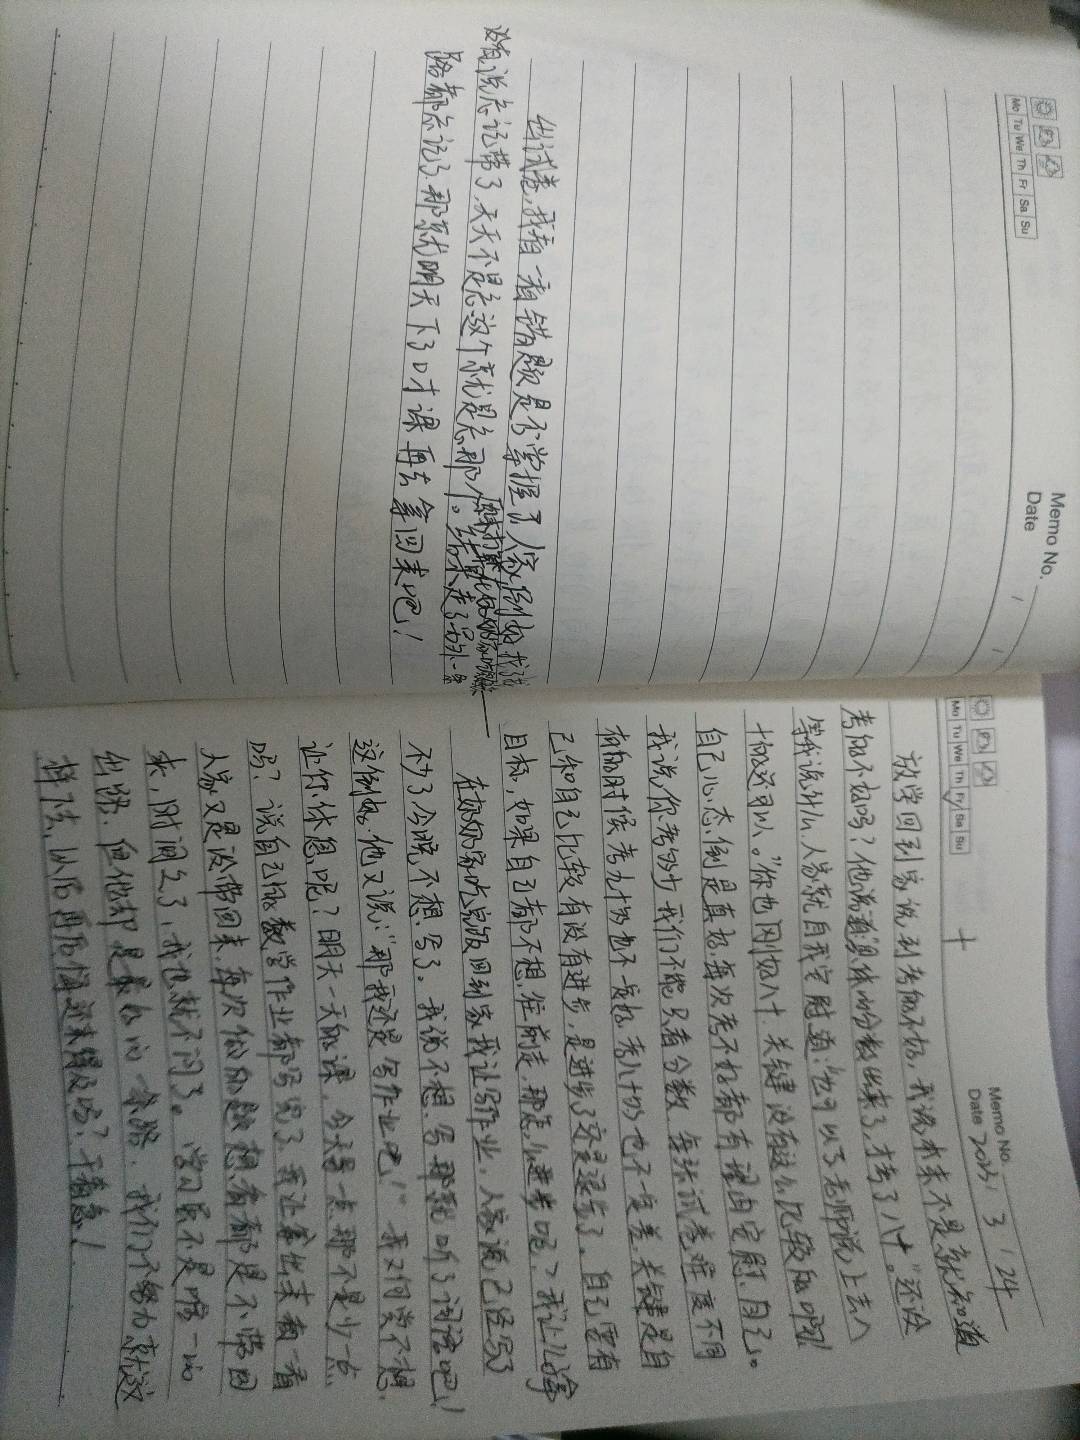 Memo No.
Date 2023 / 3 / 24
Mo Tu We Th Fr Sa Su
放学回到家说，到考的不好，我说本来不是就知道
考的不好吗？他说具体的分数出来了，才考了八十。"还没
等我说什么，人家就自我安慰道：可以了老师说，上去八
十的还可以。"你也刚好八十，关键没有这么比较的啊！
自己心态倒是真好，每次考不好都有理由安慰自己。
我说你考的步我们不能只看分数，每张试卷难度不同
有的时候考九十的也不一定好，考八十的也不一定差，关键是自
己和自己比较有没有进步，是进步了还是退步了。自己要有
目标，如果自己都不想往前走，那怎么进步呢？我让儿子拿
出试卷，我看一看错题是否掌握了，人家刚好找
没有说忘记带了，天天不是忘这个就是忘那个。结果走了另外一条
路都忘记了，那就明天下了口才课再去拿回来吧！
在奶奶家吃完饭回到家我让写作业，人家说已经写
不少了今晚不想写了。我说不想写那就听听词语吧！
这倒好，他又说："那我还是写作业吧！"我又何尝不想
让你休息呢？明天一天的课，今天写一点那不是少一点
吗？说自己的数学作业都写完了，我让拿出来看一看
人家又是没带回来，每次做的题想看都是不带回
来，时间久了，我也就不问了。学习虽不是唯一的
出路，但他却是最好的一条路，我们不努力就这
样下去，以后再后悔还来得及吗？干着急！
Memo No.
Date
Mo Tu We Th Fr Sa Su